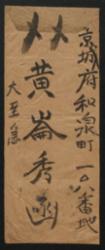 京城府和泉町一〇八番地
黄崙秀函
大至急